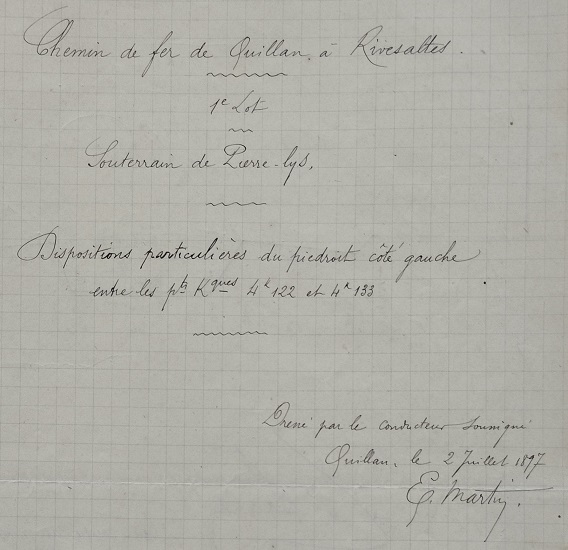 Chemin de fer de Quillan à Rivesaltes.
1e Lot
Souterrain de Pierre-lys,
Dispositions particulières du piedroit côté gauche
entre les pts Kques 4k122 et 4k133
Dressé par le conducteur soussigné
Quillan, le 2 Juillet 1897
E. Martin.